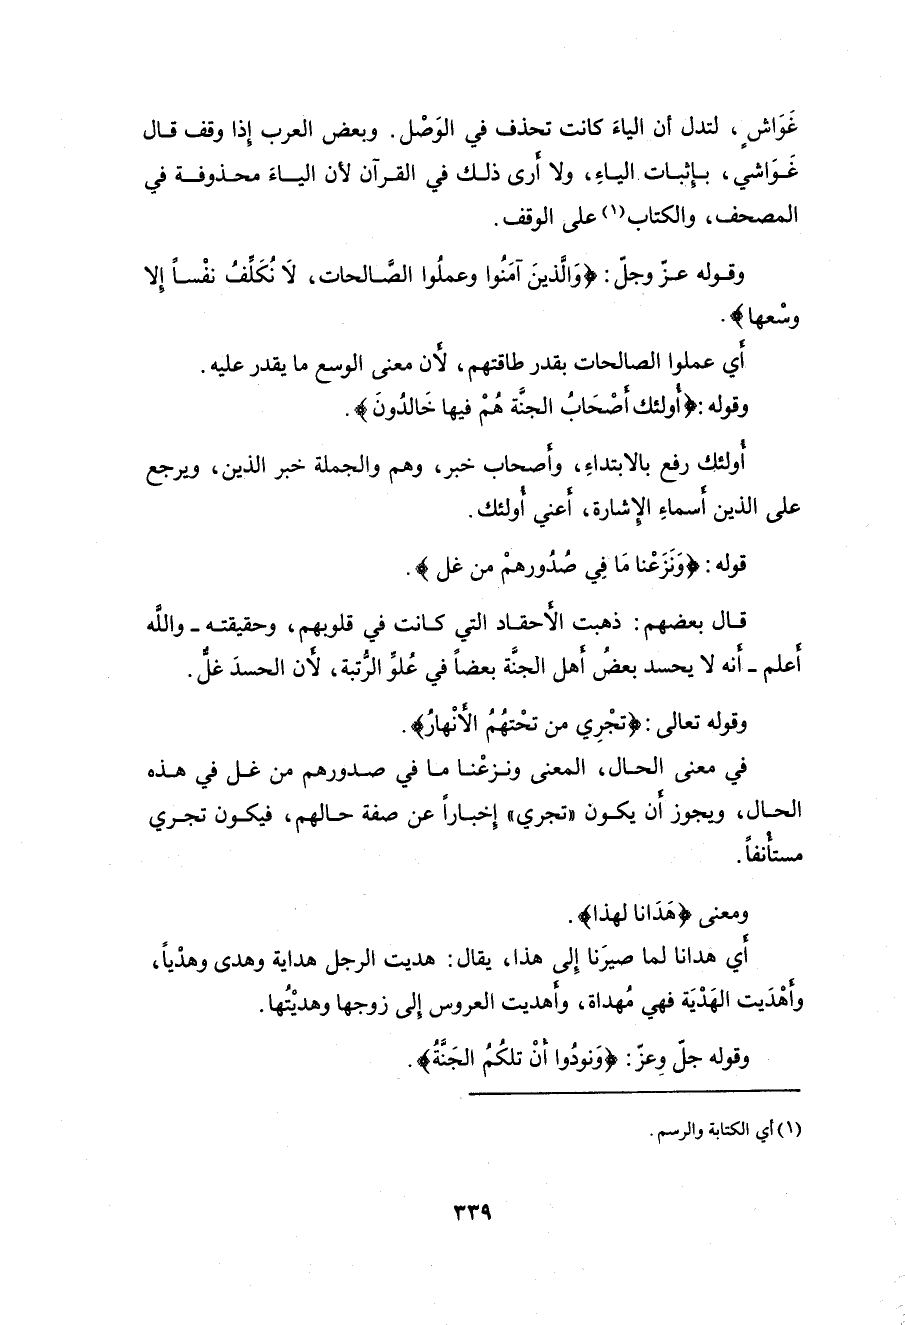 غَوَاشٍ، لتدل أن الياءَ كانت تحذف في الوَصْل. وبعض العرب إِذا وقف قال
غَوَاشي، بإِثبات الياءِ، ولا أَرى ذلك في القرآن لأن الياءَ محذوفة في
المصحف، والكتاب(١) على الوقف.
وقوله عزّ وجلّ: ﴿وَالَّذينَ آمَنُوا وعملُوا الصَّالحات، لَا نُكَلِّفُ نفْساً إِلا
وسْعها﴾.
أَي عملوا الصالحات بقدر طاقتهم، لأَن معنى الوسع ما يقدر عليه.
وقوله: ﴿أُولئك أَصْحَابُ الجنَّة هُمْ فيها خَالدُونَ﴾.
أُولئك رفع بالابتداءِ، وأَصحاب خبر، وهم والجملة خبر الذين، ويرجع
على الذين أَسماءِ الإِشارة، أَعني أُولئك.
قوله: ﴿وَنَزَعْنا مَا فِي صُدُورهمْ من غل﴾.
قال بعضهم: ذهبت الأَحقاد التي كانت في قلوبهم، وحقيقته ـ واللَّه
أَعلم ـ أَنه لا يحسد بعضُ أَهل الجنَّة بعضاً في عُلوِّ الرُّتبة، لأَن الحسدَ غلٌّ.
وقوله تعالى: ﴿تجْرِي من تحْتهُمُ الأَنْهارُ﴾.
في معنى الحال، المعنى ونزعْنا ما في صدورهم من غل في هذه
الحال، ويجوز أَن يكون «تجري» إِخباراً عن صفة حالهم، فيكون تجري
مستأْنفاً.
ومعنى ﴿هَدَانا لهذا﴾.
أَي هدانا لما صيرَنا إِلى هذا، يقال: هديت الرجل هداية وهدى وهدْياً،
وأَهْدَيت الهَدْيَة فهي مُهداة، وأَهديت العروس إِلى زوجها وهديْتُها.
وقوله جلّ وعزّ: ﴿وَنودُوا أَنْ تلكُمُ الجَنَّةُ﴾.
(١) أي الكتابة والرسم.
٣٣٩